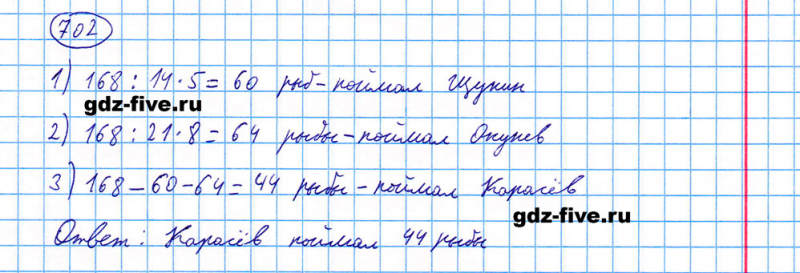 702
1) 168 : 14 · 5 = 60 рыб – поймал Щукин
gdz-five.ru
2) 168 : 21 · 8 = 64 рыбы – поймал Окунев
3) 168 – 60 – 64 = 44 рыбы – поймал Карасёв
gdz-five.ru
Ответ: Карасёв поймал 44 рыбы